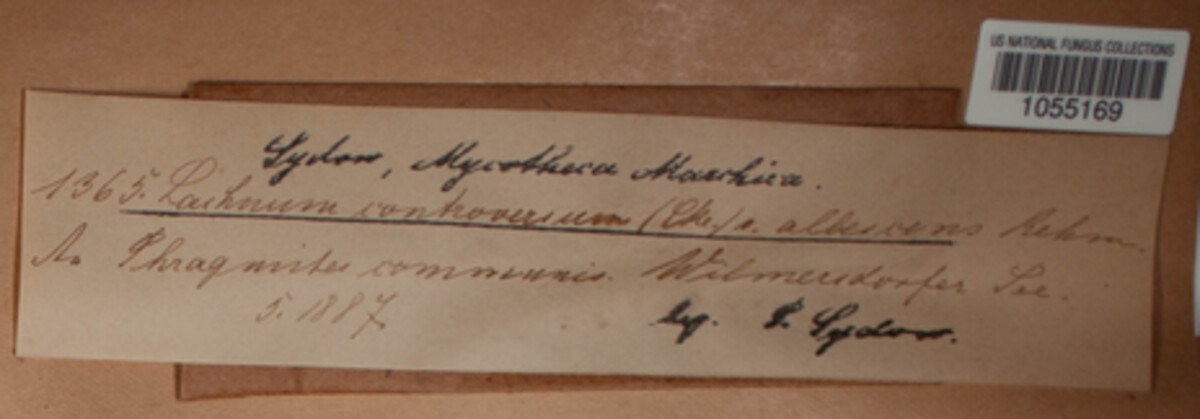 US NATIONAL FUNGUS COLLECTIONS
1055169
Sydow, Mycotheca Marchica.
1365. Lachnum controversum (Cke.) v. albescens Rehm.
An Phragmites communis. Wilmersdorfer See.
5. 1887. leg. P. Sydow.